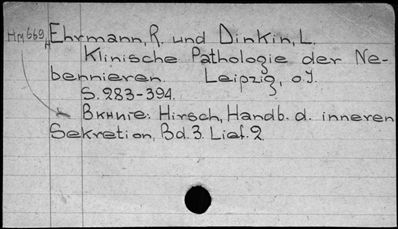 Hm 669
Ehrmann, R. und Dinkin, L.
Klinische Pathologie der Ne-
bennieren. Leipzig, o.J.
S. 283-394.
Вкниге: Hirsch, Handb. d. inneren
Sekretion, Bd. 3. Lief. 2